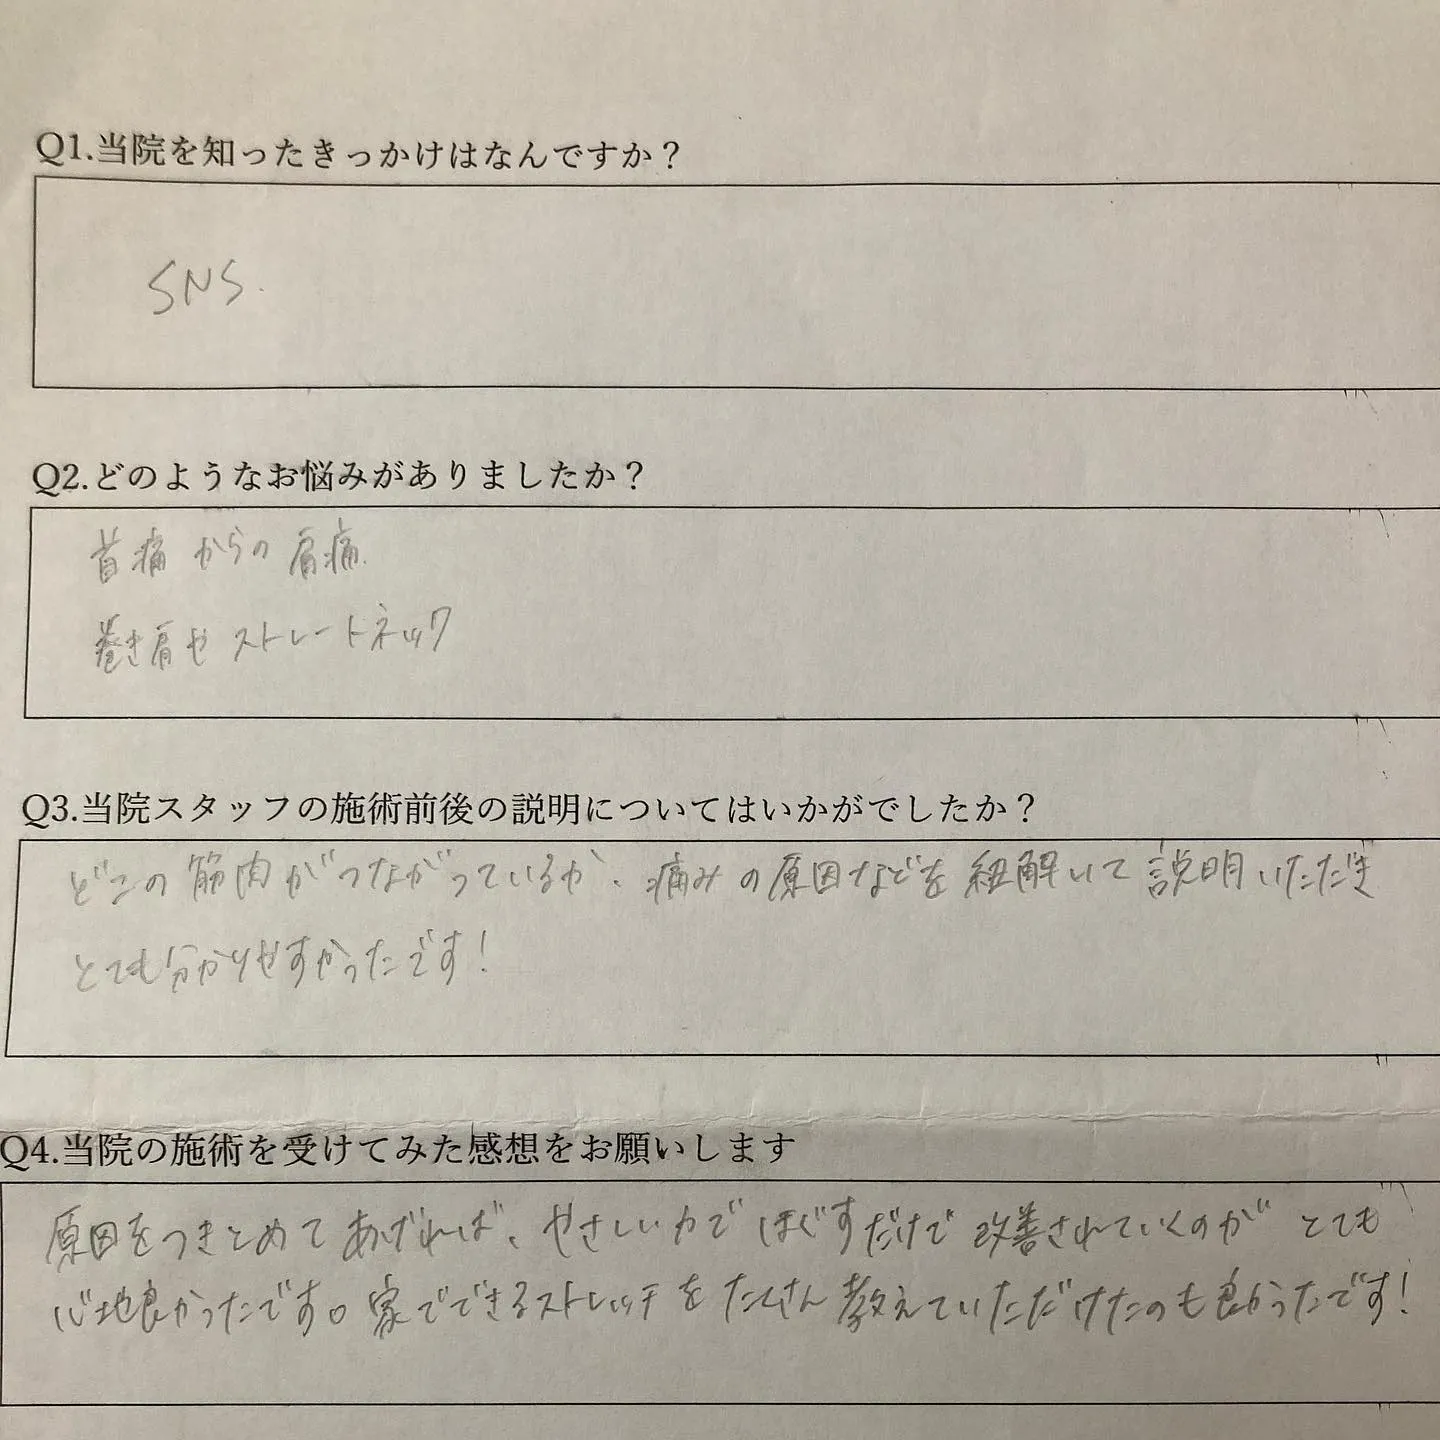 Q1.当院を知ったきっかけはなんですか？
SNS.
Q2.どのようなお悩みがありましたか？
首痛からの肩痛.
巻き肩やストレートネック
Q3.当院スタッフの施術前後の説明についてはいかがでしたか？
どこの筋肉がつながっているか、痛みの原因などを紐解いて説明いただき
とても分かりやすかったです！
Q4.当院の施術を受けてみた感想をお願いします
原因をつきとめてあげれば、やさしい力でほぐすだけで改善されていくのがとても
心地良かったです。家でできるストレッチをたくさん教えていただけたのも良かったです！